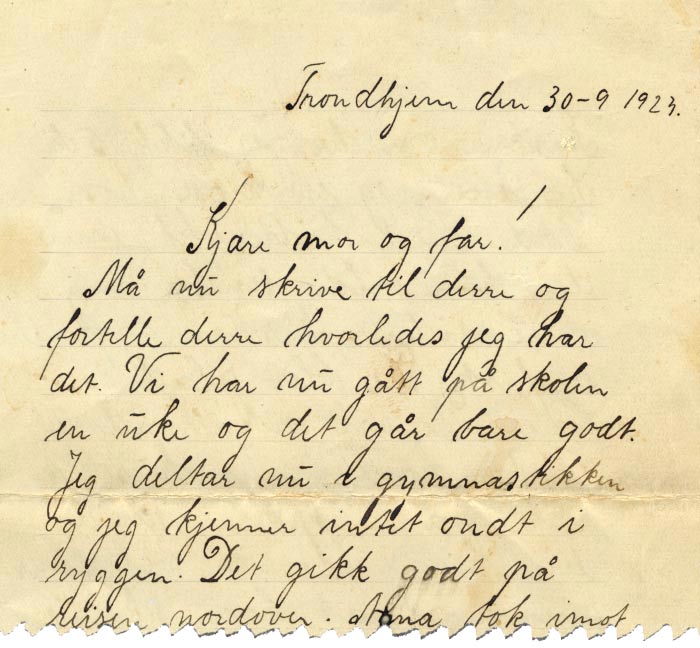 Trondhjem den 30-9 1923.
Kjære mor og far!
Må nu skrive til derre og
fortelle derre hvorledes jeg har
det. Vi har nu gått på skolen
en uke og det går bare godt.
Jeg deltar nu i gymnastikken
og jeg kjenner intet ondt i
ryggen. Det gikk godt på
reisen nordover. Anna tok imot